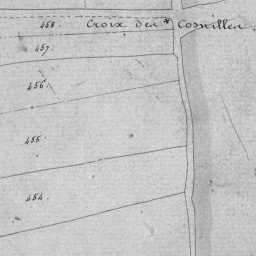 458. Croix des
457.
456.
455
454.